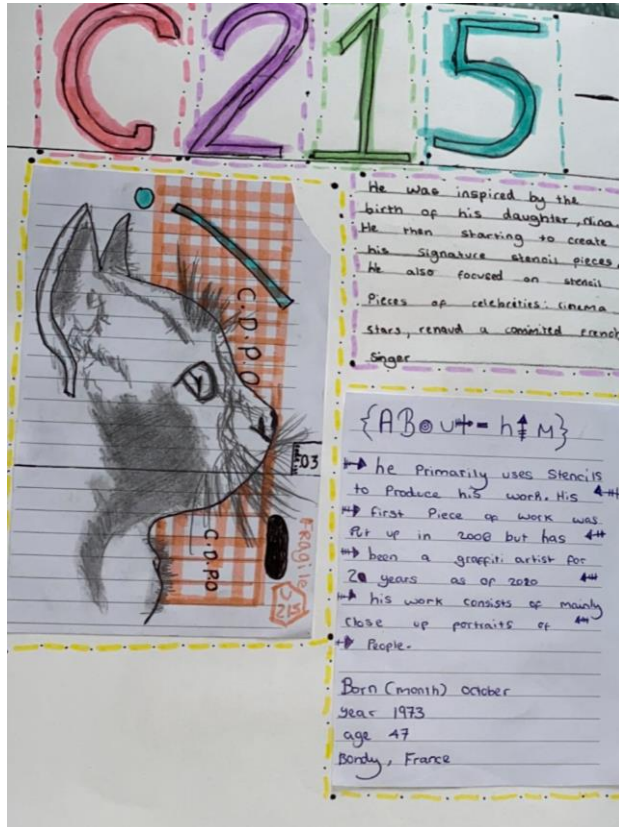 C215
He was inspired by the
birth of his daughter, Nina.
He then starting to create
his signature stencil pieces.
He also focused on stencil
Pieces of celebrities: cinema
stars, renaud a commited french
singer
C.D.P.O
.03
C.D.P.O
FRAGILE
215
{ABOUT-hiM}
he Primarily uses Stencils
to Produce his work. His
first Piece of work was
Put up in 2006 but has
been a graffiti artist for
20 years as of 2020
his work consists of mainly
close up portraits of
People.
Born (month) october
year 1973
age 47
Bondy, France